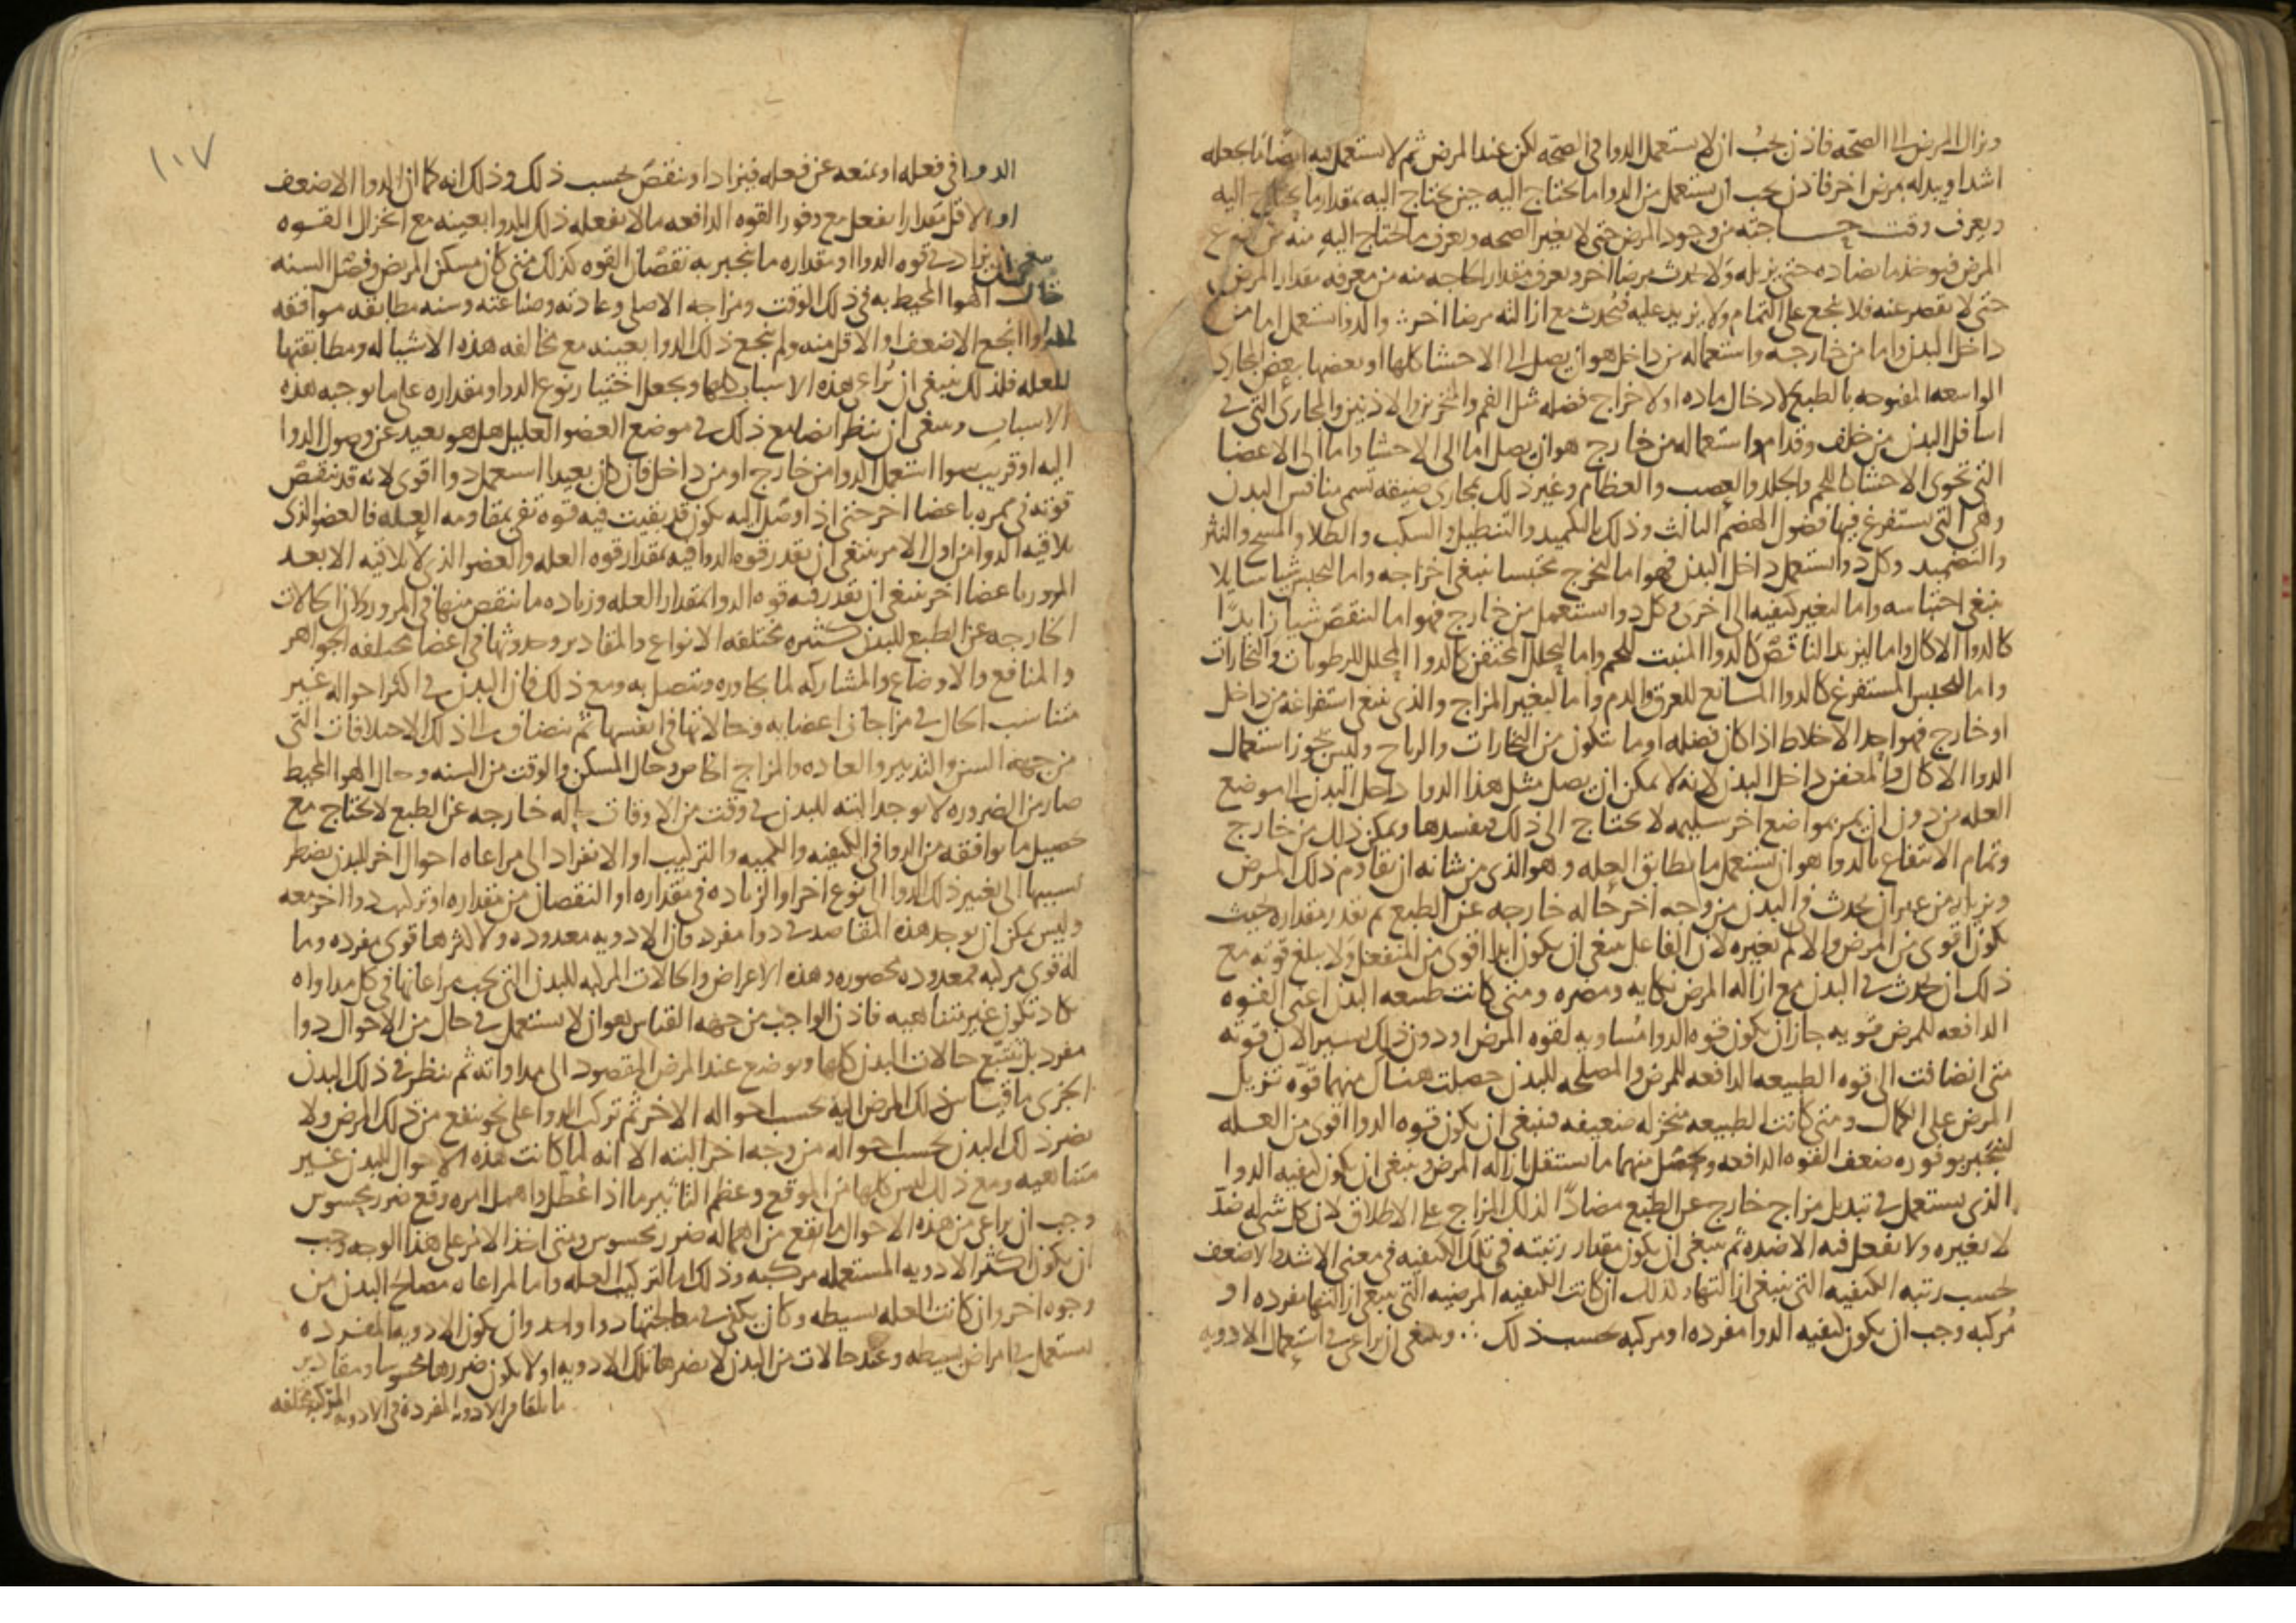 ويزال المرض الى الصحه فاذن يجب ان لا يستعمل الدوا في الصحه لكن عند المرض ثم لا يستعمل فيه ايضا ما يجعله
اشد او يبدله بمرض اخر فاذن يجب ان يستعمل من الدوا ما يحتاج اليه حين يحتاج اليه بمقدار ما يحتاج اليه
ويعرف وقت حاجته من وجود المرض حتى لا يغير الصحه ويعرف ما احتاج اليه منه من نوع
المرض فيوخذ ما يضاده حتى يزيله ولا يحدث مرضا اخر ويعرف مقدار الحاجه منه من معرفه مقدار المرض
حتى لا يقصر عنه فلا ينجع على التمام ولا يزيد عليه فيحدث مع ازالته مرضا اخر ∴ والدوا يستعمل اما من
داخل البدن واما من خارجه واستعماله من داخل هو ان يصل الى الاحشا كلها او بعضها ببعض المجاري
الواسعه المفتوحه بالطبع لادخال ماده او لاخراج فضله مثل الفم والمنخرين والاذنين والمجاري التي في
اسافل البدن من خلف وقدام واستعماله من خارج هو ان يصل اما الى الاحشا واما الى الاعضا
التي تحوي الاحشا كاللحم والجلد والعصب والعظام وغير ذلك بمجاري ضيقه تسمى منافس البدن
وهي التي تستفرغ فيها فضول الهضم الثالث وذلك بالتكميد والتنطيل والسكب والطلا والمسح والنثر
والتضميد وكل دوا يستعمل داخل البدن فهو اما ليخرج محتبسا ينبغي اخراجه واما ليحبس شيا سايلا
ينبغي احتباسه واما ليغير كيفيه الى اخرى وكل دوا يستعمل من خارج فهو اما لينقص شيا زايدا
كالدوا الاكال واما ليزيد الناقص كالدوا المنبت للحم واما ليحلل المحتقن كالدوا المحلل للرطوبات والبخارات
واما ليحبس المستفرغ كالدوا المانع للعرق والدم واما ليغير المزاج والذي ينبغي استفراغه من داخل
او خارج فهو احد الاخلاط اذا كان فضله او ما يتكون من البخارات والرياح وليس يجوز استعمال
الدوا الاكال والمعفن داخل البدن لانه لا يمكن ان يصل مثل هذا الدوا داخل البدن الى موضع
العله من دون ان يمر بمواضع اخر سليمه لا يحتاج الى ذلك فيفسدها ويمكن ذلك من خارج
وتمام الانتفاع بالدوا هو ان يستعمل ما يطابق العله وهو الذي من شانه ان يقاوم ذلك المرض
ويزيله من غير ان يحدث في البدن من وجه اخر حاله خارجه عن الطبع ثم يقدر مقداره حيث
يكون اقوى من المرض والا لم يغيره لان الفاعل ينبغي ان يكون ابدا اقوى من المنفعل ولا يبلغ قوته مع
ذلك ان يحدث في البدن مع ازاله المرض نكايه ومضره ومتى كانت طبيعه البدن اعني القوه
الدافعه للمرض قويه جاز ان يكون قوه الدوا مساويه لقوه المرض او دون ذلك بيسير لان قوته
متى انضافت الى قوه الطبيعه الدافعه للمرض والمصلحه للبدن حصلت هناك منهما قوه تزيل
المرض على الكمال ومتى كانت الطبيعه منخزله ضعيفه فينبغي ان يكون قوه الدوا اقوى من العله
لينجبر بوفوره ضعف القوه الدافعه ويحصل منهما ما يستقل بازاله المرض وينبغي ان يكون كيفيه الدوا
الذي يستعمل في تبديل مزاج خارج عن الطبع مضادا لذلك المزاج على الاطلاق لان كل شي له ضد
لا يغيره ولا يفعل فيه الا ضده ثم ينبغي ان يكون مقدار رتبته في تلك الكيفيه في معنى الاشد والاضعف
بحسب رتبه الكيفيه التي ينبغي ازالتها وكذلك ان كانت الكيفيه المرضيه التي ينبغي ازالتها مفرده او
مركبه وجب ان يكون كيفيه الدوا مفرده او مركبه بحسب ذلك ∴ وينبغي ان يراعى في استعمال الادويه
١٠٧
الدوا في فعله او يمنعه عن فعله فيزاد او ينقص بحسب ذلك وذلك انه كما ان الدوا الاضعف
او الاقل مقدارا يفعل مع وفور القوه الدافعه ما لا يفعله ذلك الدوا بعينه مع انخزال القوه
ان يزاد في قوه الدوا او مقداره ما ينجبر به نقصان القوه كذلك متى كان مسكن المريض وفصل السنه
وحال الهوا المحيط به في ذلك الوقت ومزاجه الاصلي وعادته وصناعته وسنه مطابقه موافقه
انجع الاضعف او الاقل منه ولم ينجع ذلك الدوا بعينه مع مخالفه هذه الاشيا له ومطابقتها
للعله فلذلك ينبغي ان يراعى هذه الاسباب كلها ويجعل اختيار نوع الدوا ومقداره على ما يوجبه هذه
الاسباب وينبغي ان ينظر ايضا مع ذلك في موضع العضو العليل هل هو بعيد عن وصول الدوا
اليه او قريب سوا استعمل الدوا من خارج او من داخل فان كان بعيدا استعمل دوا اقوى لانه قد ينقص
قوته في ممره باعضا اخر حتى اذا وصل اليه يكون قد بقيت فيه قوه تفي بمقاومه العله فالعضو الذي
يلاقيه الدوا من اول الامر ينبغي ان يقدر قوه الدوا فيه بمقدار قوه العله والعضو الذي لا يلاقيه الا بعد
المرور باعضا اخر ينبغي ان يقدر فيه قوه الدوا بمقدار العله وزياده ما ينقص منها في المرور ولان الحالات
الخارجه عن الطبع للبدن كثيره مختلفه الانواع والمقادير وحدوثها في اعضا مختلفه الجواهر
والمنافع والاوضاع والمشاركه لما يجاوره ويتصل به ومع ذلك فان البدن في اكثر احواله غير
متناسب الحال في مزاجات اعضايه وحالاتها في انفسها ثم ينضاف الى ذلك الاختلافات التي
من جهه السن والتدبير والعاده والمزاج الخاص وحال المسكن والوقت من السنه وحال الهوا المحيط
صار من الضروره لا يوجد البته للبدن في وقت من الاوقات حاله خارجه عن الطبع لا يحتاج مع
تحصيل ما يوافقه من الدوا في الكيفيه والكميه والتركيب او الانفراد الى مراعاه احوال اخر للبدن يضطر
بسببها الى تغيير ذلك الدوا الى نوع اخر او الزياده في مقداره او النقصان من مقداره او تركيب دوا اخر معه
وليس يمكن ان يوجد هذه المقاصد في دوا مفرد فان الادويه معدوده ولاكثرها قوى مفرده وما
له قوى مركبه فمعدوده محصوره وهذه الاعراض والحالات المركبه للبدن التي يجب مراعاتها في كل مداواه
تكاد تكون غير متناهيه فاذن الواجب من جهه القياس هو ان لا يستعمل في حال من الاحوال دوا
مفرد بل يتتبع حالات البدن كلها ويوضع عند المرض المقصود الى مداواته ثم ينظر في ذلك البدن
الجزي ما قياس ذلك المرض اليه بحسب احواله الاخر ثم تركب الدوا على نحو ينفع من ذلك المرض ولا
يضر ذلك البدن بحسب احواله من وجه اخر البته الا انه لما كانت هذه الاحوال للبدن غير
متناهيه ومع ذلك ليس كلها من الموقع وعظم التاثير ما اذا عطل واهمل امره وقع ضرر محسوس
وجب ان يراعى من هذه الاحوال ما يقع من اهماله ضرر محسوس ومتى اخذ الامر على هذا الوجه وجب
ان يكون اكثر الادويه المستعمله مركبه وذلك اما لتركيب العله واما لمراعاه مصالح البدن من
وجوه اخر وان كانت العله بسيطه وكان يكفي في معالجتها دوا واحد وان يكون الادويه المفرده
تستعمل في امراض بسيطه وعند حالات من البدن لا يضرها تلك الادويه او لا يكون ضررها محسوسا ومقادير
ما يلقا من الادويه المفرده في الادويه المركبه مختلفه